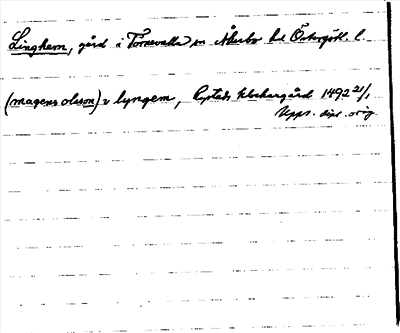 Linghem, gård i Törnevalla sn Åkerbo hd Östergötl. l.
(magens olsson) i lyngem, Rystads klockargård 1492 21/1
Upps. dipl. orig